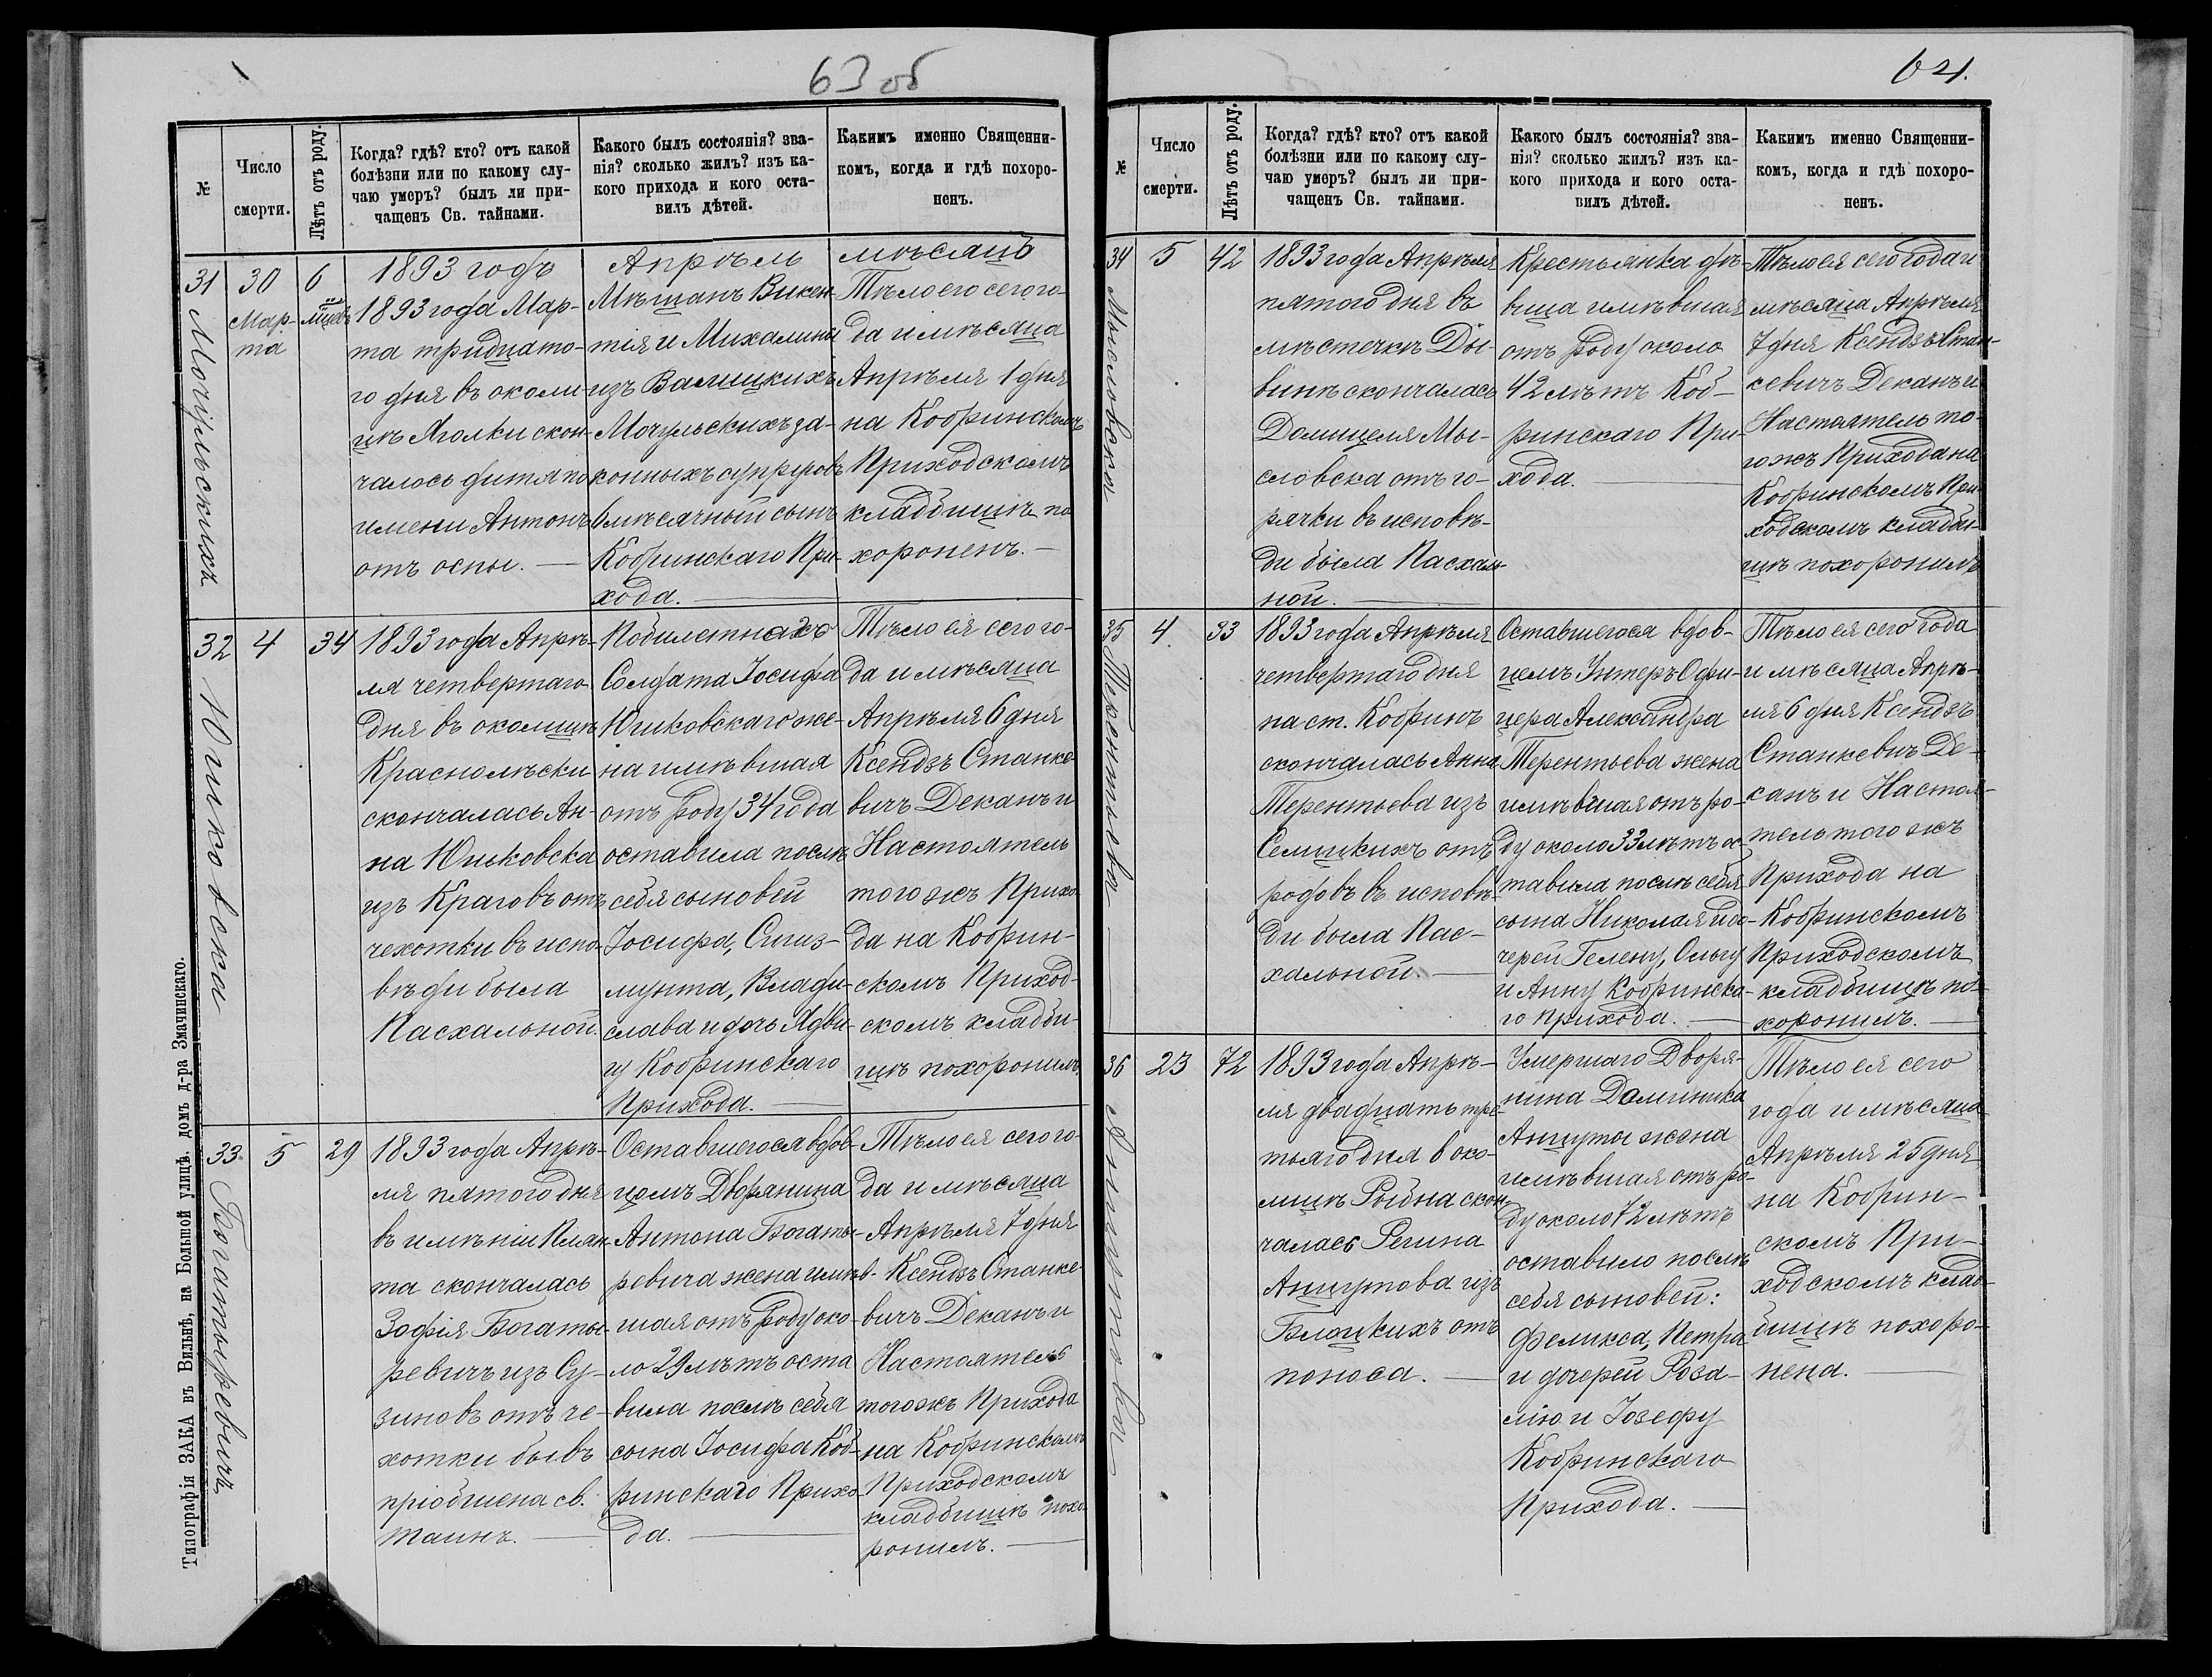 63 об
№
Число
смерти.
Лѣтъ отъ роду.
Когда? гдѣ? кто? отъ какой
болѣзни или по какому слу-
чаю умеръ? былъ ли при-
чащенъ Св. тайнами.
Какого былъ состоянія? зва-
нія? сколько жилъ? изъ ка-
кого прихода и кого оста-
вилъ дѣтей.
Какимъ именно Священни-
комъ, когда и гдѣ похоро-
ненъ.
1893 годъ Апрѣль мѣсяцъ
31
Мочульскихъ
30
Мар-
та
6
мцевъ
1893 года Мар-
та тридцато-
го дня въ околи-
цѣ Яголки скон-
чалось дитя по
имени Антонъ
отъ оспы. —
Мѣщанъ Викен-
тія и Михалины
изъ Валицкихъ
Мочульскихъ за-
конныхъ супруговъ
6 мѣсячный сынъ
Кобринскаго При-
хода. —
Тѣло его сего го-
да и мѣсяца
Апрѣля 1 дня
на Кобринскомъ
Приходскомъ
кладбищѣ по
хороненъ. —
32
Юшковска
4
34
1893 года Апрѣ-
ля четвертаго
дня въ околицѣ
Краснолѣски
скончалась Ан-
на Юшковска
изъ Краговъ отъ
чехотки въ испо-
вѣди была
Пасхальной.
Побилетнаго
Солдата Іосифа
Юшковскаго же-
на имѣвшая
отъ роду 34 года
оставила послѣ
себя сыновей
Іосифа, Сигиз-
мунта, Влади-
слава и дочь Ядви-
гу Кобринскаго
Прихода. —
Тѣло ея сего го-
да и мѣсяца
Апрѣля 6 дня
Ксендзъ Станке-
вичъ Деканъ и
Настоятель
того жъ Прихо-
да на Кобрин-
скомъ Приход-
скомъ кладби-
щѣ похоронилъ.
33
Богатыревичъ
5
29
1893 года Апрѣ-
ля пятого дня
въ имѣніи Плян-
та скончалась
Зофія Богаты-
ревичъ изъ Су-
зиновъ отъ че-
хотки бывъ
пріобщена св.
таинъ. —
Оставшегося вдов-
цомъ Дворянина
Антона Богаты-
ревича жена имѣв-
шая отъ роду око-
ло 29 лѣтъ оста
вила послѣ себя
сына Іосифа Коб-
ринскаго Прихо-
да. —
Тѣло ея сего го-
да и мѣсяца
Апрѣля 7 дня
Ксендзъ Станке-
вичъ Деканъ и
Настоятель
того жъ Прихода
на Кобринскомъ
Приходскомъ
кладбищѣ похо-
ронилъ. —
Типографія ЗАКА въ Вильнѣ, на Большой улицѣ. домъ д-ра Змачинскаго.
64.
№
Число
смерти.
Лѣтъ отъ роду.
Когда? гдѣ? кто? отъ какой
болѣзни или по какому слу-
чаю умеръ? былъ ли при-
чащенъ Св. тайнами.
Какого былъ состоянія? зва-
нія? сколько жилъ? изъ ка-
кого прихода и кого оста-
вилъ дѣтей.
Какимъ именно Священни-
комъ, когда и гдѣ похоро-
ненъ.
34
Мысловска
5
42
1893 года Апрѣля
пятого дня въ
мѣстечкѣ Ды-
винѣ скончалась
Домицеля Мы-
словска отъ го-
рячки въ исповѣ-
ди была Пасхаль-
ной. —
Крестьянка дѣ-
вица имѣвшая
отъ роду около
42 лѣтъ Коб-
ринскаго При-
хода. —
Тѣло ея сего года и
мѣсяца Апрѣля
7 дня Ксендзъ Стан-
кевичъ Деканъ и
Настоятель то-
го жъ Прихода на
Кобринскомъ При-
ходскомъ кладби-
щѣ похоронилъ
35
Терентьева
4
33
1893 года Апрѣля
четвертаго дня
на ст. Кобринъ
скончалась Анна
Терентьева изъ
Селицкихъ отъ
родовъ въ исповѣ-
ди была Пас-
хальной. —
Оставшегося вдов-
цемъ Унтеръ Офи-
цера Александра
Терентьева жена
имѣвшая отъ ро-
ду около 33 лѣтъ ос-
тавила послѣ себя
сына Николая и до-
черей Гелену, Ольгу
и Анну Кобринска-
го прихода. —
Тѣло ея сего года
и мѣсяца Апрѣ-
ля 6 дня Ксендзъ
Станкевичъ Де-
канъ и Настоя-
тель того жъ
Прихода на
Кобринскомъ
Приходскомъ
кладбищѣ по-
хоронилъ. —
36
Анцутова
23
72
1893 года Апрѣ-
ля двадцать тре-
тьяго дня в око-
лицѣ Рыбна скон-
чалась Регина
Анцутова изъ
Блоцкихъ отъ
поноса. —
Умершаго Дворя-
нина Доминика
Анцуты жена
имѣвшая отъ ро-
ду около 72 лѣтъ
оставило послѣ
себя сыновей:
Феликса, Петра
и дочерей Роза-
лію и Іозефу
Кобринскаго
Прихода. —
Тѣло ея сего
года и мѣсяца
Апрѣля 25 дня
на Кобрин-
скомъ При-
ходскомъ клад-
бищѣ похоро-
нена. —